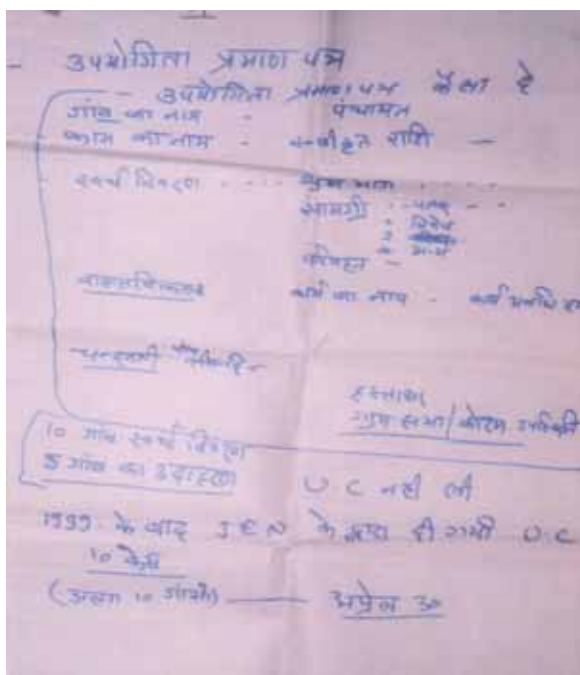 - उपयोगिता प्रमाण पत्र
- उपयोगिता प्रमाण पत्र कैसा है
गांव का नाम - पंचायत
काम का नाम - स्वीकृत राशि -
खर्च विवरण - - - - श्रम भाग - - - -
सामग्री - - -
कार्य का नाम - कार्य
हस्ताक्षर
ग्राम सभा / कोरम
10 गांव खर्च विवरण
5 गांव का उदाहरण
U C नहीं ली
1999 के बाद J E N के द्वारा दी गयी U.C
10 केस
(अलग 10 गांवके) ——— अप्रेल 30